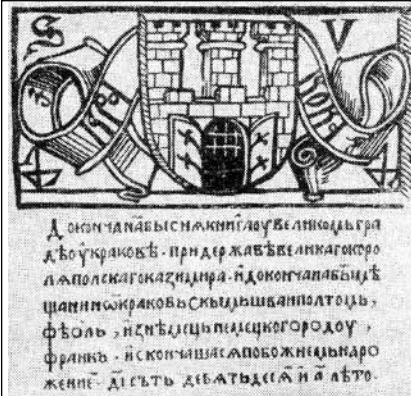 S V
Докончана бы сиѧ книга оу великомь гра
дѣ оу краковѣ · при державѣ великаго коро
лѧ полскаго казимира · и докончана бы мѣ
щаниномь краковьскымь шваиполтомь,
фѣоль, из нѣмець немецкого родоу,
франкь · и скончашасѧ по божиемь наро
жением · д҃і сътъ девѧтьдесѧ и а҃ лѣто.